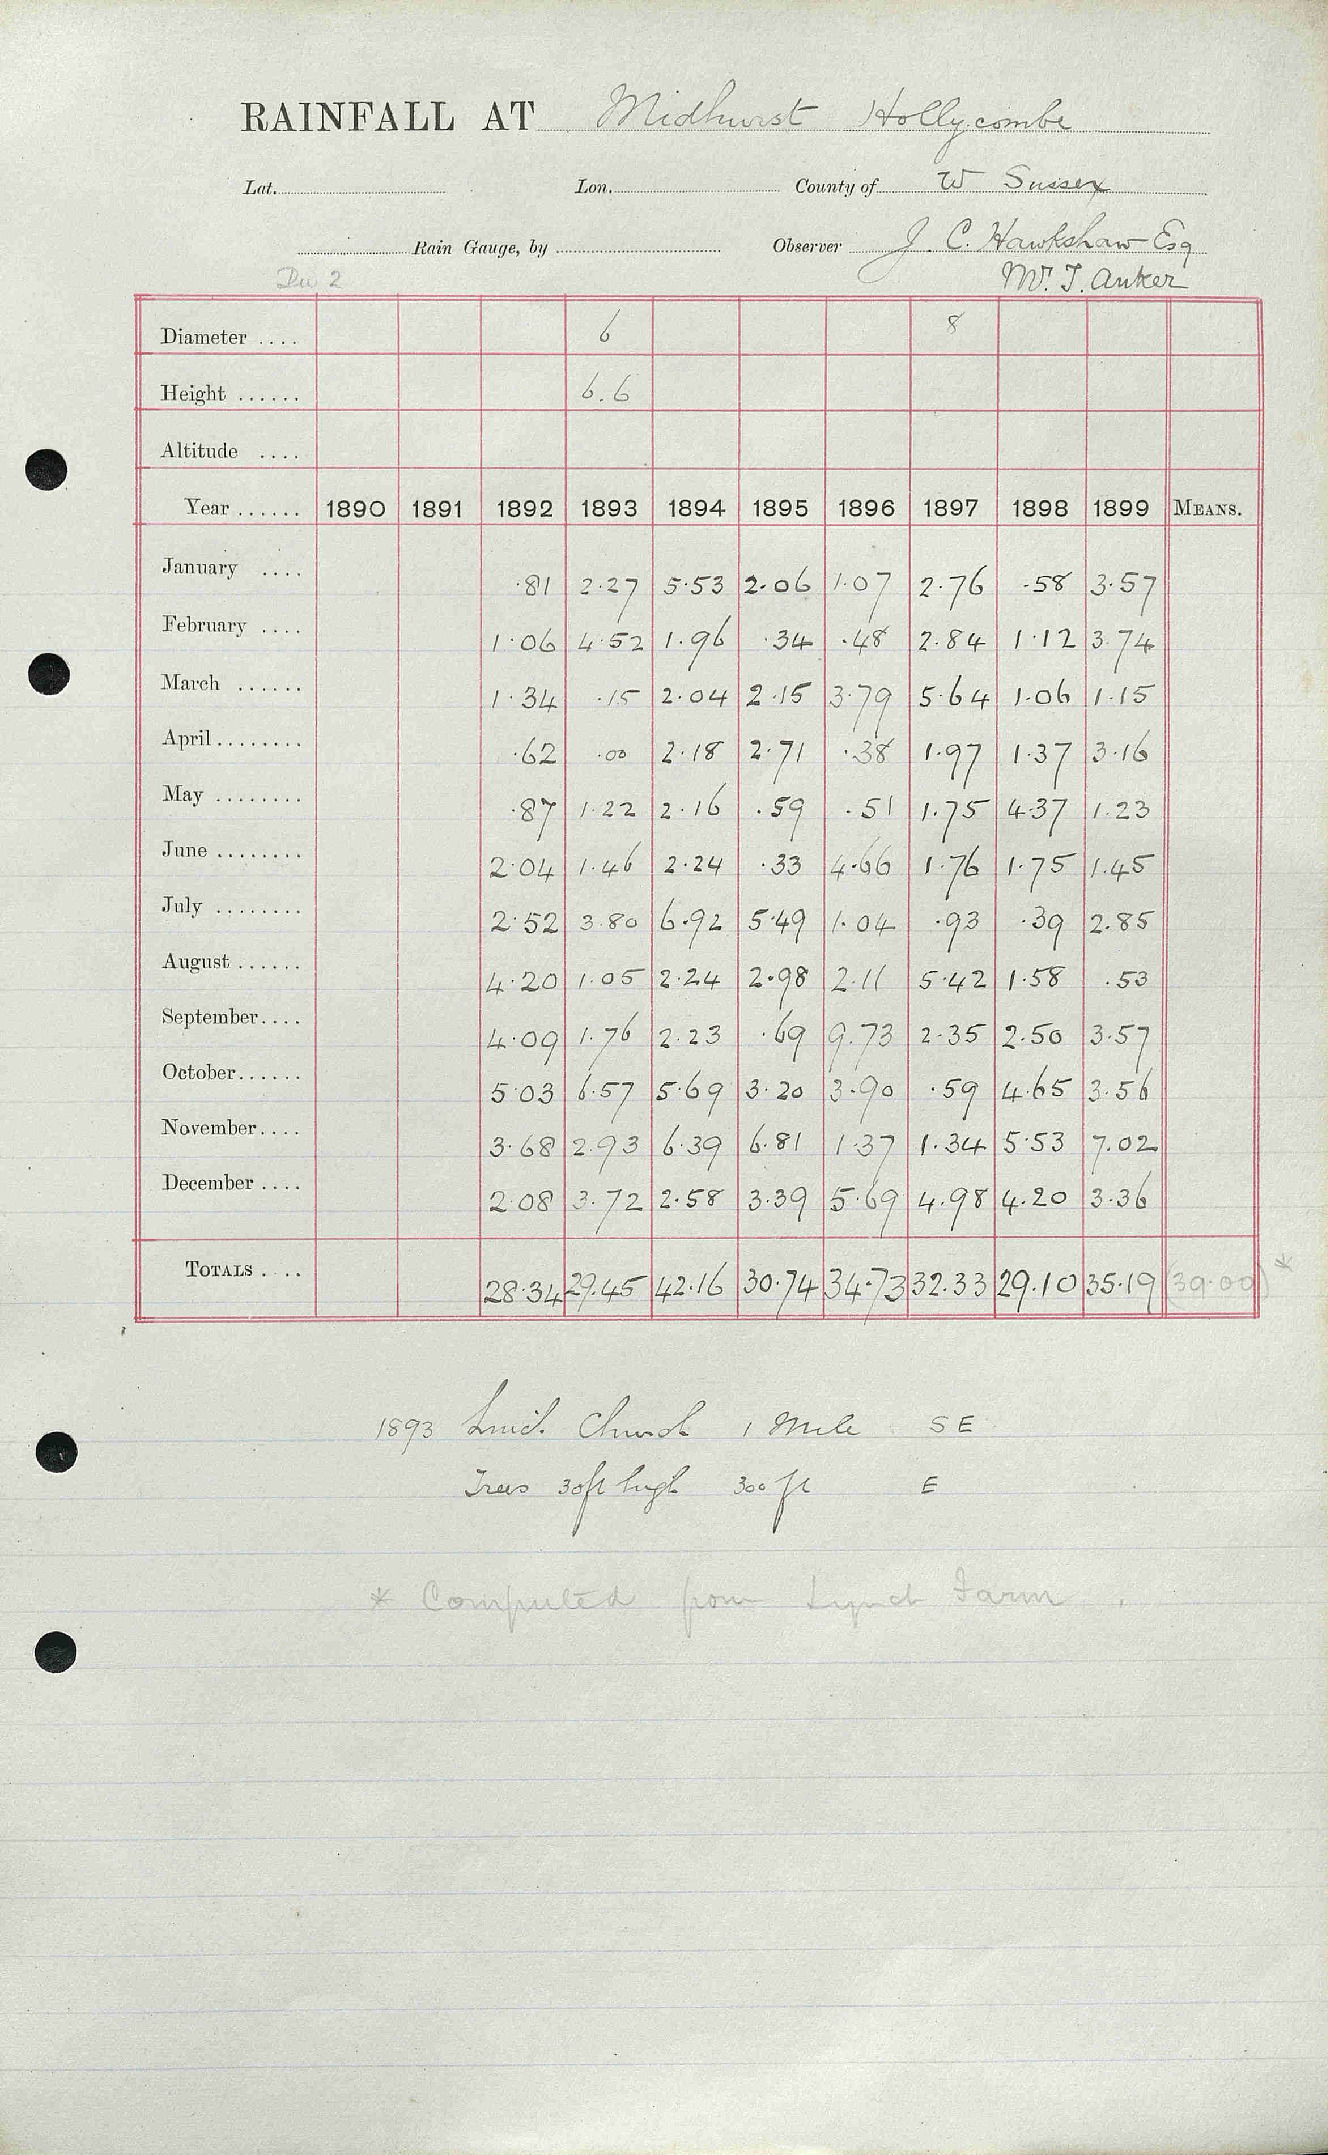 RAINFALL AT Midhurst Hollycombe
Lat. Lon. County of W Sussex
Rain Gauge, by Observer J. C. Hawkshaw Esq
Mr. T. Anker
Diameter .... 6 8
Height ...... 6.6
Altitude ....
Year ...... 1890 1891 1892 1893 1894 1895 1896 1897 1898 1899 MEANS.
January .... ·81 2·27 5·53 2·06 1·07 2·76 ·58 3·57
February .... 1·06 4·52 1·96 ·34 ·48 2·84 1·12 3·74
March ...... 1·34 ·15 2·04 2·15 3·79 5·64 1·06 1·15
April ........ ·62 ·00 2·18 2·71 ·38 1·97 1·37 3·16
May ........ ·87 1·22 2·16 ·59 ·51 1·75 4·37 1·23
June ........ 2·04 1·46 2·24 ·33 4·66 1·76 1·75 1·45
July ........ 2·52 3·80 6·92 5·49 1·04 ·93 ·39 2·85
August ...... 4·20 1·05 2·24 2·98 2·11 5·42 1·58 ·53
September.... 4·09 1·76 2·23 ·69 9·73 2·35 2·50 3·57
October...... 5·03 6·57 5·69 3·20 3·90 ·59 4·65 3·56
November.... 3·68 2·93 6·39 6·81 1·37 1·34 5·53 7·02
December .... 2·08 3·72 2·58 3·39 5·69 4·98 4·20 3·36
TOTALS .... 28·34 29·45 42·16 30·74 34·73 32·33 29·10 35·19 (39·00) *
1893 Church 1 Mile SE
Trees 30ft high 300 ft E
* Computed from Lynch Farm .